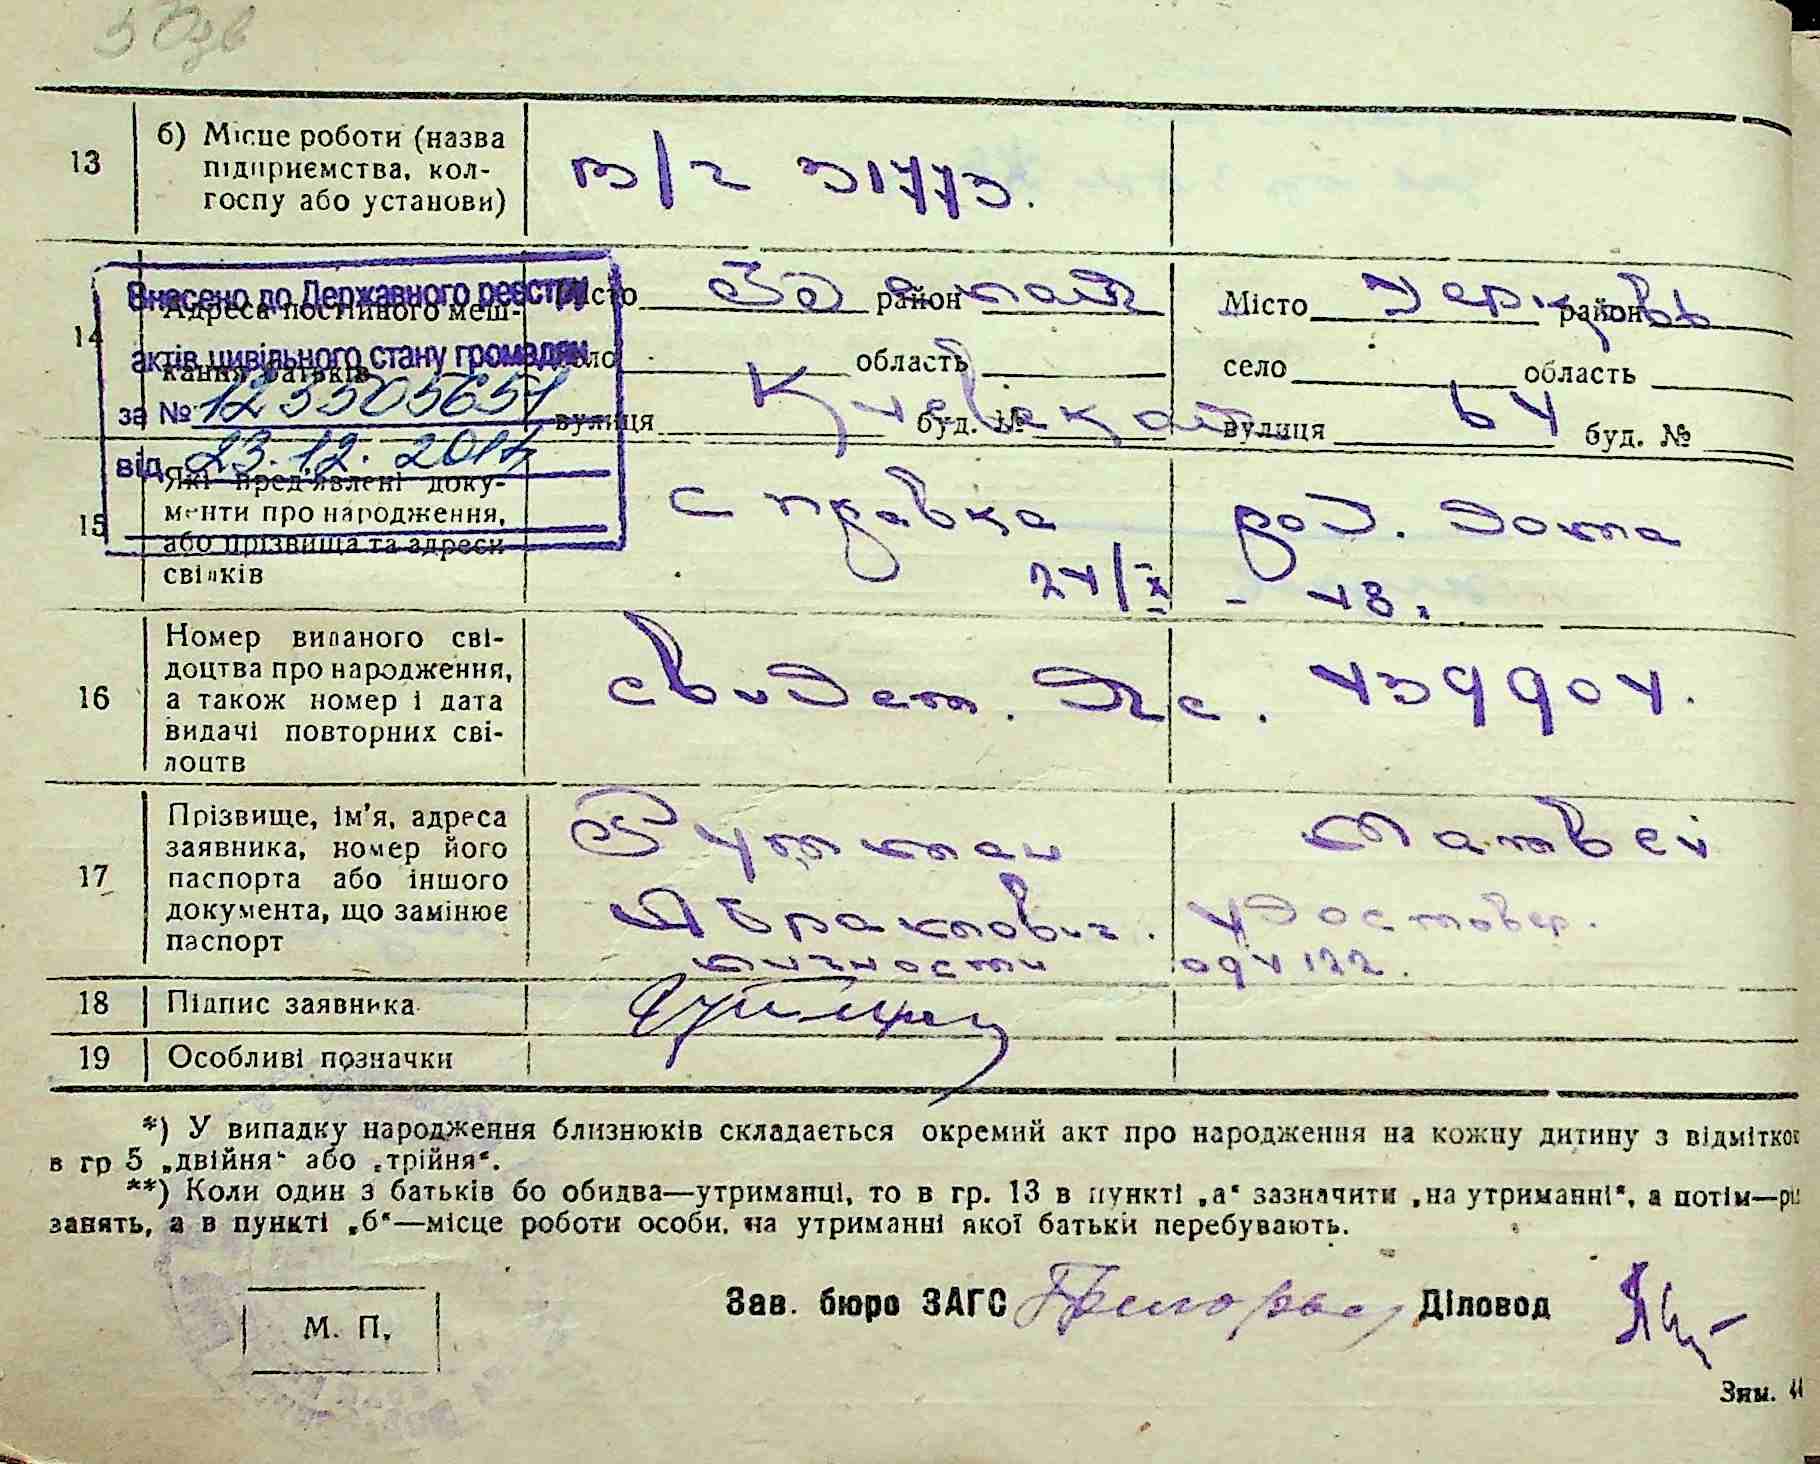 13
б) Місце роботи (назва
підприємства, кол-
госпу або установи)
в/ч 31773.
Внесено до Державного реєстру
актів цивільного стану громадян
за №
від 23.12.2014
14
Адреса постійного меш-
кання батьків
Місто район
село область
вулиця буд. №
Місто район
село область
вулиця буд. №
15
Які пред'явлені доку-
менти про народження,
або прізвища та адреси
свідків
справка род. дома
24/X - 48.
16
Номер виданого сві-
доцтва про народження,
а також номер і дата
видачі повторних сві-
доцтв
свидет. 439904.
17
Прізвище, ім'я, адреса
заявника, номер його
паспорта або іншого
документа, що замінює
паспорт
Гутман Матвей
Абрамович. удостовер.
личности
18
Підпис заявника
19
Особливі позначки
*) У випадку народження близнюків складається окремий акт про народження на кожну дитину з відміткою
в гр 5 „двійня“ або „трійня“.
**) Коли один з батьків бо обидва—утриманці, то в гр. 13 в пункті „а“ зазначити „на утриманні“, а потім—рі
занять, а в пункті „б“—місце роботи особи, на утриманні якої батьки перебувають.
М. П.
Зав. бюро ЗАГС Діловод
Зям.